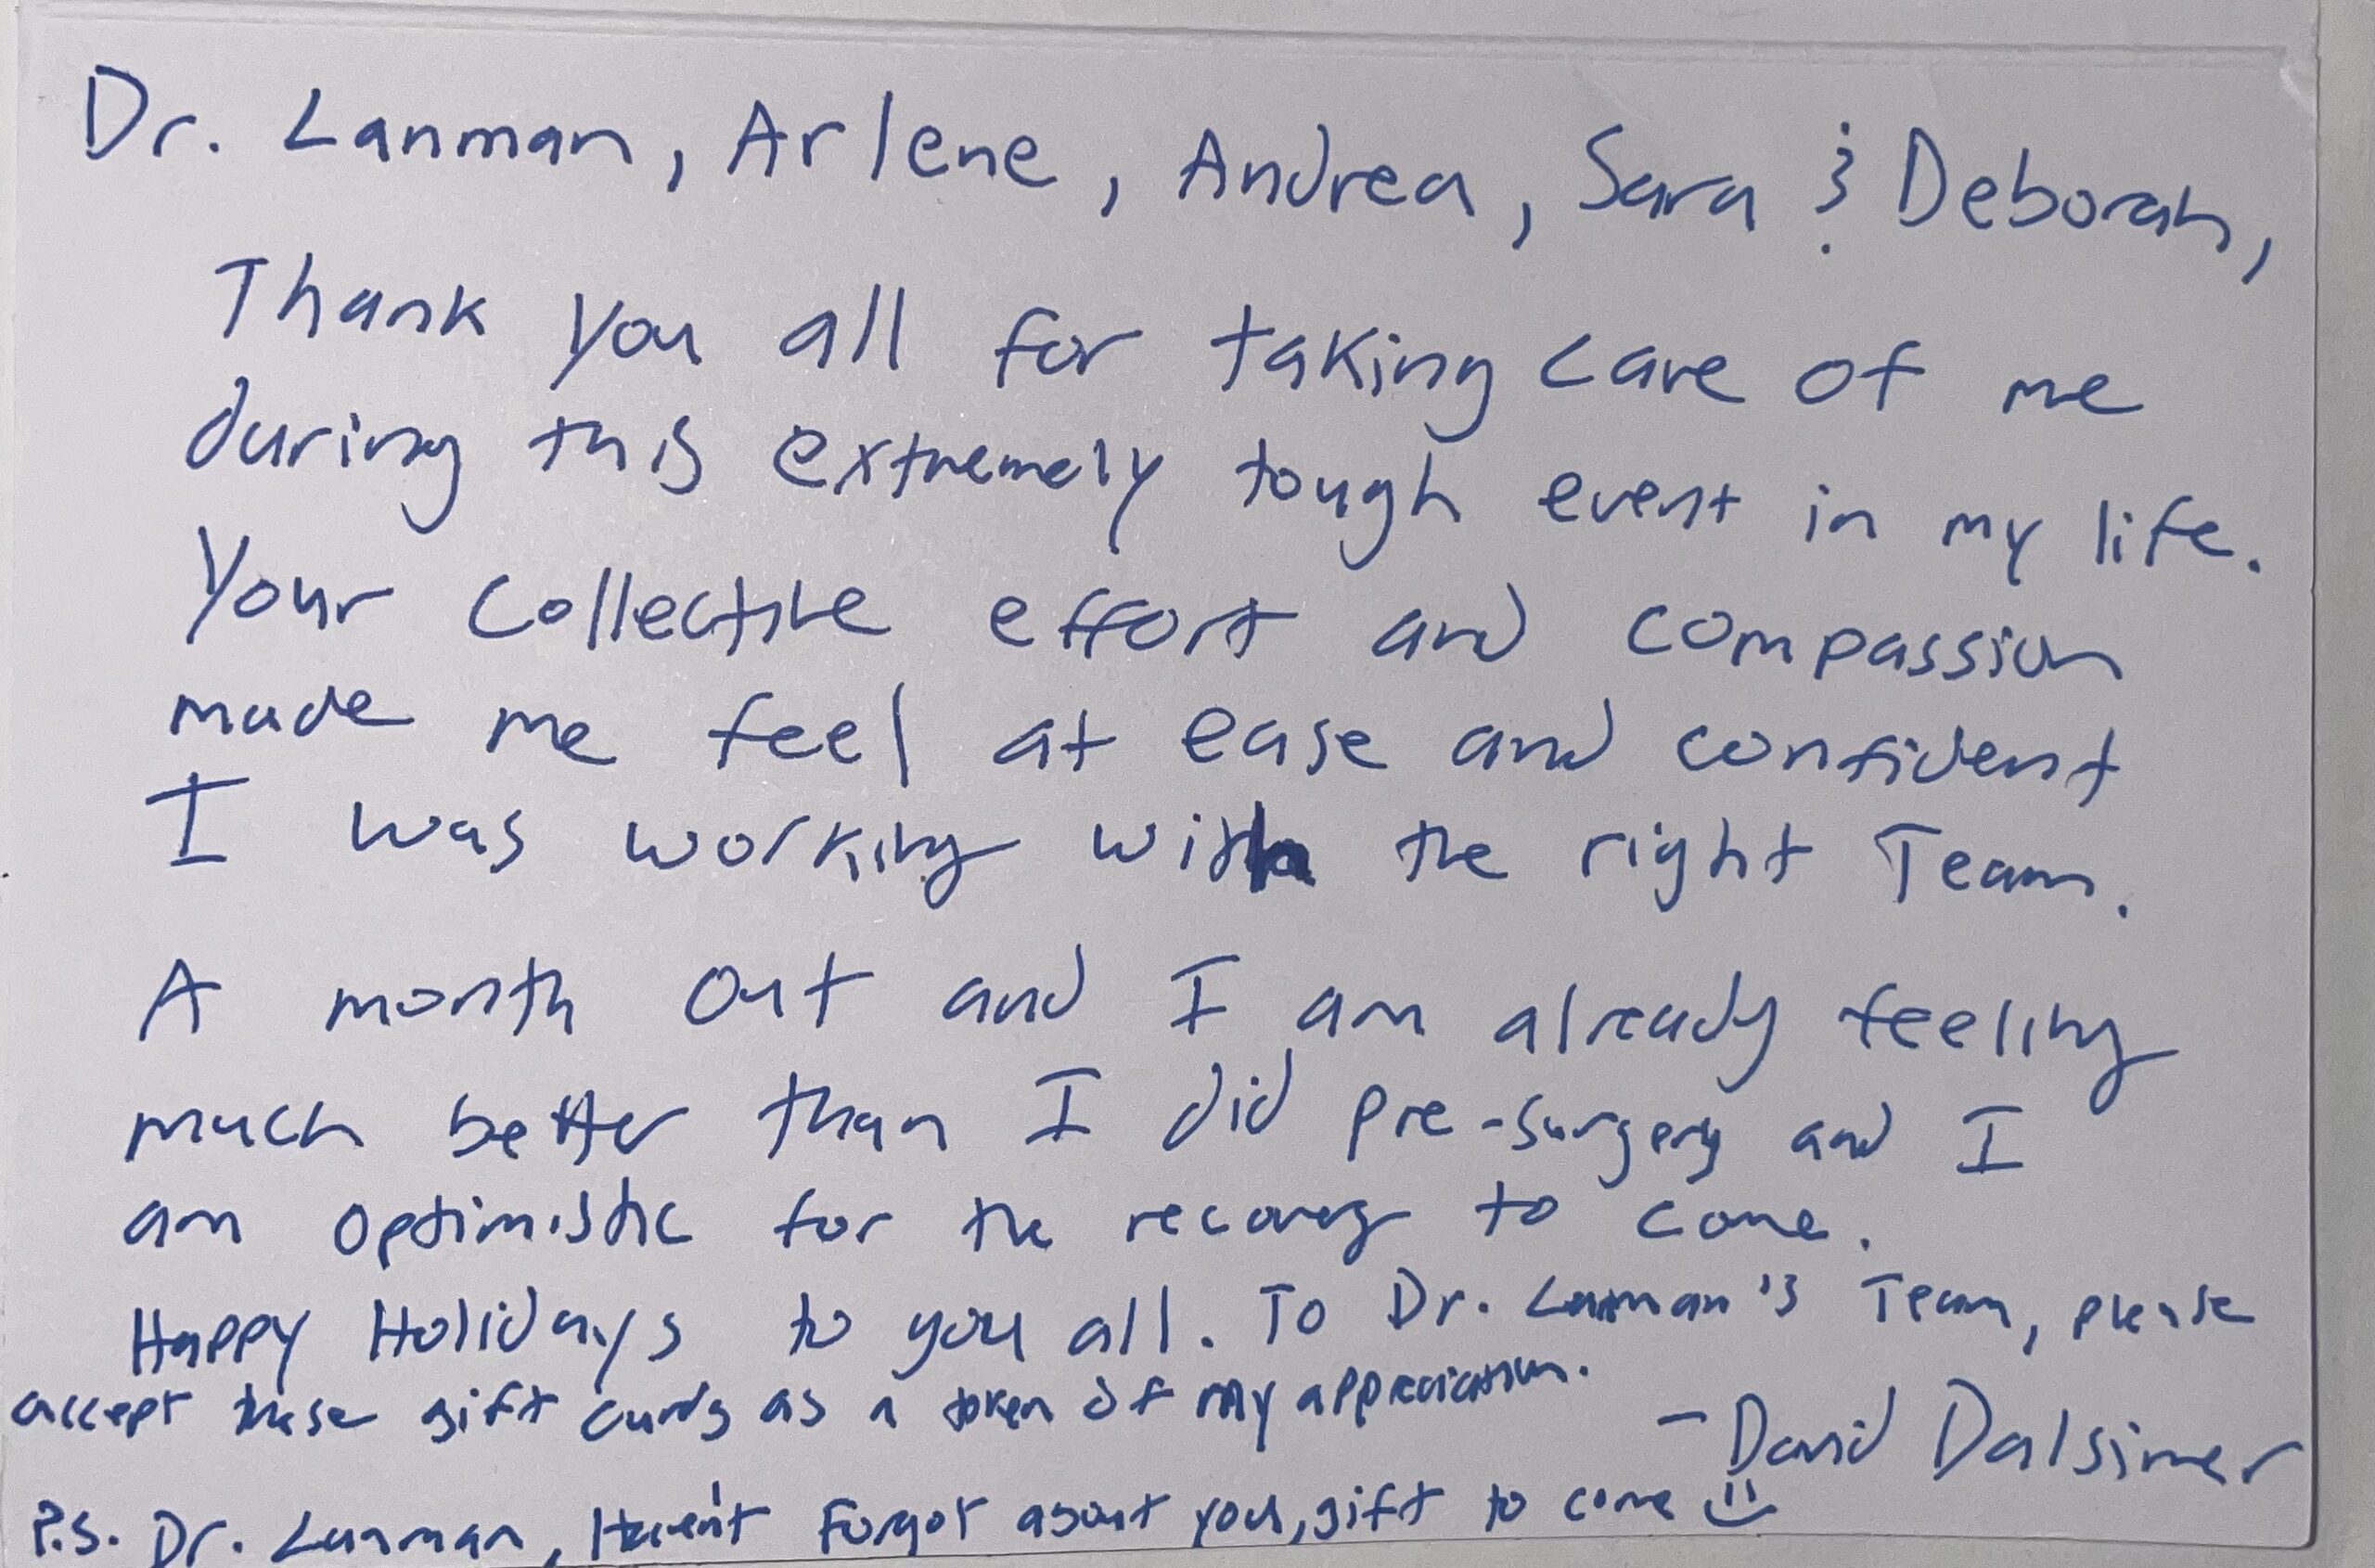 Dr. Lanman, Arlene, Andrea, Sara & Deborah,
Thank you all for taking care of me
during this extremely tough event in my life.
Your collective effort and compassion
made me feel at ease and confident
I was working with the right Team.
A month out and I am already feeling
much better than I did pre-surgery and I
am optimistic for the recovery to come.
Happy Holidays to you all. To Dr. Lanman's Team, please
accept these gift cards as a token of my appreciation.
- David Dalsimer
P.S. Dr. Lanman, Haven't Forgot about you, gift to come